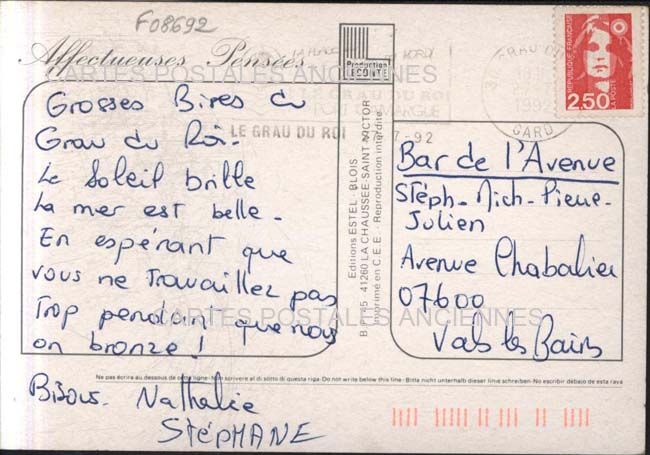 F08692
Affectueuses Pensées
CARTES POSTALES ANCIENNES
Production
LECONTE
LE GRAU DU ROI
LE GRAU DU ROI 27-7-92
GARD
REPUBLIQUE FRANÇAISE
LA POSTE
2,50
Grosses Bises du
Grau du Roi.
Le Soleil brille
La mer est belle.
En espérant que
vous ne Travaillez pas
Trop pendant que nous
on bronze !
Bisous. Nathalie
STéPHANE
Editions ESTEL - BLOIS
41260 LA CHAUSSÉE-SAINT-VICTOR
Imprimé en C.E.E. - Reproduction interdite
Bar de l'Avenue
Stéph-Mich-Pierre-
Julien
Avenue Chabalier
07600
Vals les Bains
CARTES POSTALES ANCIENNES
Ne pas écrire au dessous de cette ligne - Non scrivere al di sotto di questa riga - Do not write below this line - Bitte nicht unterhalb dieser linie schreiben - No escribir debajo de esta raya